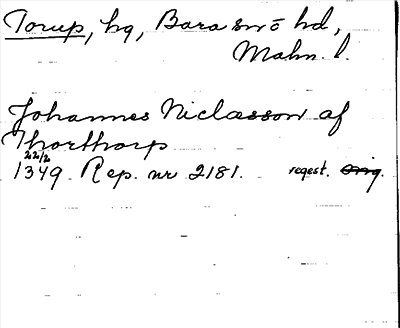 Torup, hg, Bara sn o hd,
Malm. l.
Johannes Niclæsson af
Thorthorp
22/2
1349 Rep. nr 2181. regest. orig.